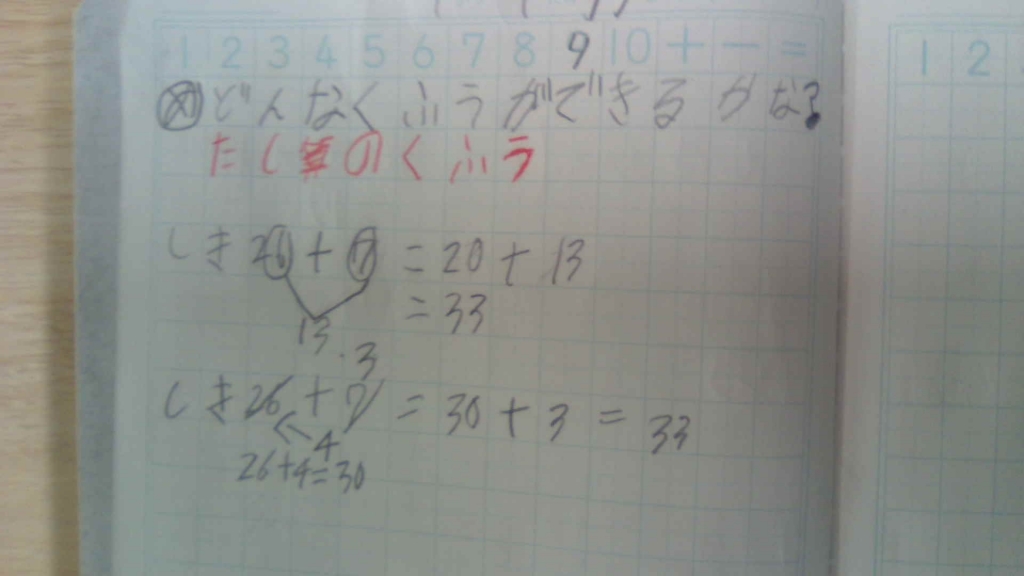 1 2 3 4 5 6 7 8 9 10 + - =
1 2
めどんなくふうができるかな?
たし算のくふう
しき 26 + 7 = 20 + 13
= 33
13
3
しき 26 + 7 = 30 + 3 = 33
4
26+4=30